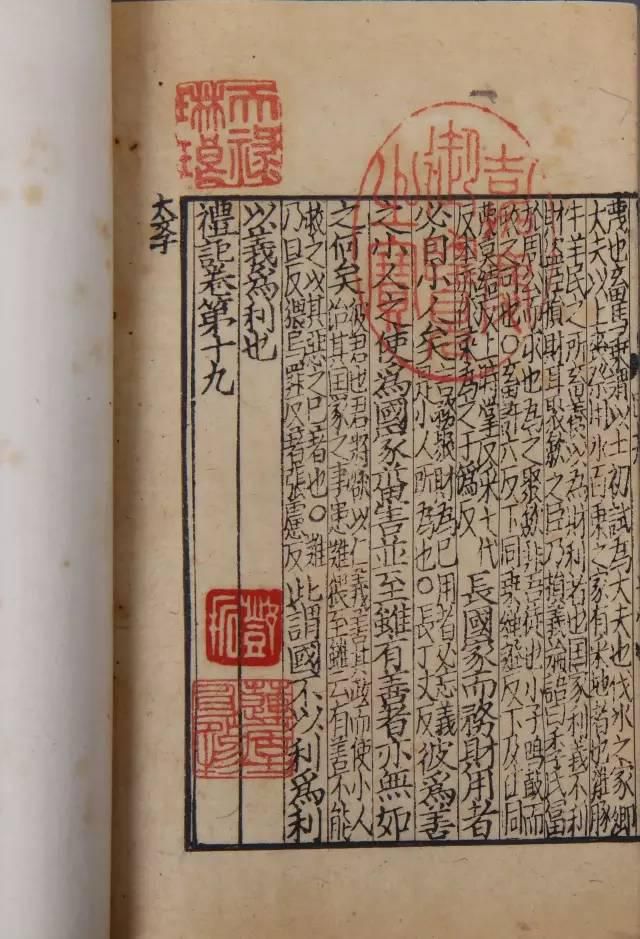 蔑也畜馬乘謂以士初試為大夫也伐冰之家卿
大夫以上喪祭用冰百乘之家有采地者也雞豚
牛羊民之所畜養以為財利者也国家利義不利
財盗臣損財耳聚斂之臣乃損義論語曰季氏冨
於周公而求也為之聚斂非吾徒也小子鳴鼓而
攻之可也〇畜許六反下同乘繩證反下及注同
蔑莫結反上時掌反采七代
反本亦作菜為之于僞反
長國家而務財用者
必自小人矣
言務聚財為已用者必忘義
是小人所為也〇長丁丈反
彼為善
之小人之使爲國家菑害並至雖有善者亦無如
之何矣
彼君也君將欲以仁義善其政而使小人
治其国家之事患難猥至雖云有善不能
救之以其惡之已著也〇難
乃旦反猥烏罪反著張慮反
此謂國不以利爲利
以義爲利也
禮記卷第十九
大斈
天祿琳琅
御覽之寶